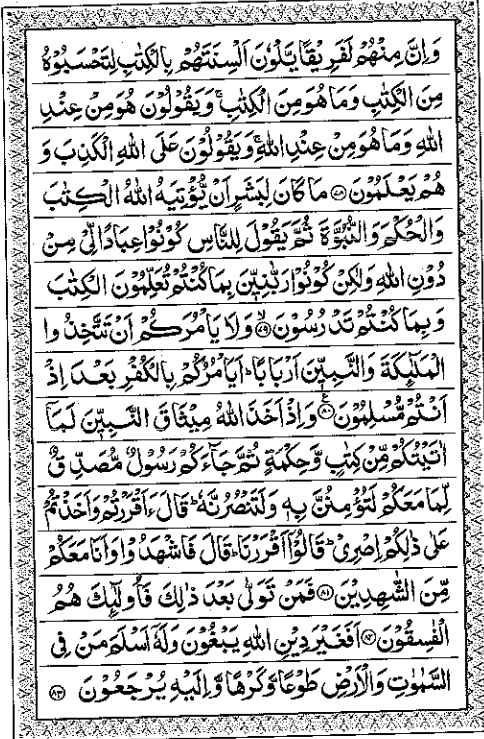 وَاِنَّ مِنْهُمْ لَفَرِيْقًا يَّلْوٗنَ اَلْسِنَتَهُمْ بِالْكِتٰبِ لِتَحْسَبُوْهُ
مِنَ الْكِتٰبِ وَمَا هُوَ مِنَ الْكِتٰبِ ۚ وَيَقُوْلُوْنَ هُوَ مِنْ عِنْدِ
اللّٰهِ وَمَا هُوَ مِنْ عِنْدِ اللّٰهِ ۚ وَيَقُوْلُوْنَ عَلَى اللّٰهِ الْكَذِبَ وَ
هُمْ يَعْلَمُوْنَ ۝٧٨ مَا كَانَ لِبَشَرٍ اَنْ يُّؤْتِيَهُ اللّٰهُ الْكِتٰبَ
وَالْحُكْمَ وَالنُّبُوَّةَ ثُمَّ يَقُوْلَ لِلنَّاسِ كُوْنُوْا عِبَادًا لِّيْ مِنْ
دُوْنِ اللّٰهِ وَلٰكِنْ كُوْنُوْا رَبّٰنِيّٖنَ بِمَا كُنْتُمْ تُعَلِّمُوْنَ الْكِتٰبَ
وَبِمَا كُنْتُمْ تَدْرُسُوْنَ ۙ۝٧٩ وَلَا يَاْمُرَكُمْ اَنْ تَتَّخِذُوا
الْمَلٰٓئِكَةَ وَالنَّبِيّٖنَ اَرْبَابًا ؕ اَيَاْمُرُكُمْ بِالْكُفْرِ بَعْدَ اِذْ
اَنْتُمْ مُّسْلِمُوْنَ ۝٨٠ۧ وَاِذْ اَخَذَ اللّٰهُ مِيْثَاقَ النَّبِيّٖنَ لَمَاۤ
اٰتَيْتُكُمْ مِّنْ كِتٰبٍ وَّحِكْمَةٍ ثُمَّ جَآءَكُمْ رَسُوْلٌ مُّصَدِّقٌ
لِّمَا مَعَكُمْ لَتُؤْمِنُنَّ بِهٖ وَلَتَنْصُرُنَّهٗ ؕ قَالَ ءَاَقْرَرْتُمْ وَاَخَذْتُمْ
عَلٰى ذٰلِكُمْ اِصْرِيْ ؕ قَالُوْۤا اَقْرَرْنَا ؕ قَالَ فَاشْهَدُوْا وَاَنَا مَعَكُمْ
مِّنَ الشّٰهِدِيْنَ ۝٨١ فَمَنْ تَوَلّٰى بَعْدَ ذٰلِكَ فَاُولٰٓئِكَ هُمُ
الْفٰسِقُوْنَ ۝٨٢ اَفَغَيْرَ دِيْنِ اللّٰهِ يَبْغُوْنَ وَلَهٗۤ اَسْلَمَ مَنْ فِى
السَّمٰوٰتِ وَالْاَرْضِ طَوْعًا وَّكَرْهًا وَّاِلَيْهِ يُرْجَعُوْنَ ۝٨٣